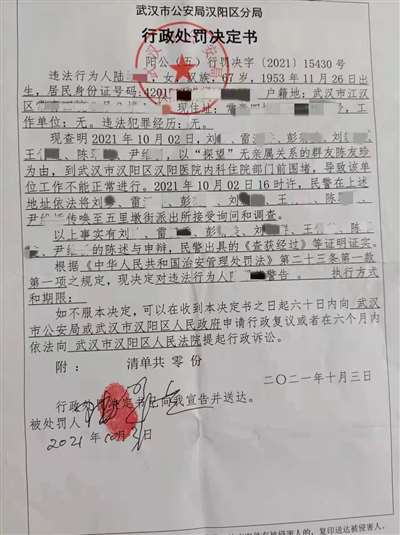 武汉市公安局汉阳区分局
行政处罚决定书
阳公(五)行罚决字〔2021〕15430号
违法行为人陆 女 汉族,67岁,1953年11月26日出
生,居民身份证号码:4201 户籍地:武汉市江汉
区 现住址: 工
作单位:无。违法犯罪经历:无。
现查明2021年10月02日,刘 彭
王 、陈 尹 ,以“探望”无亲属关系的群友陈友珍
为由,到武汉市汉阳区汉阳医院内科住院部门前围堵,导致该单
位工作不能正常进行。2021年10月02日16时许,民警在上述
地址依法将刘 王 、陈
尹 传唤至五里墩街派出所接受询问和调查。
以上事实有刘 彭 陈
、尹 的陈述与申辩,民警出具的《查获经过》等证明证实。
根据《中华人民共和国治安管理处罚法》第二十三条第一款
第一项之规定,现决定对违法行为人 警告 。 执行方式
和期限:
如不服本决定,可以在收到本决定书之日起六十日内向 武汉
市公安局或武汉市汉阳区人民政府申请行政复议或者在六个月内
依法向 武汉市汉阳区人民法院提起行政诉讼。
附: 清单共 零 份
二〇二一年十月三日
行政处罚决定书已向我宣告并送达。
被处罚人
2021年10月3日
复印送达被侵害人。